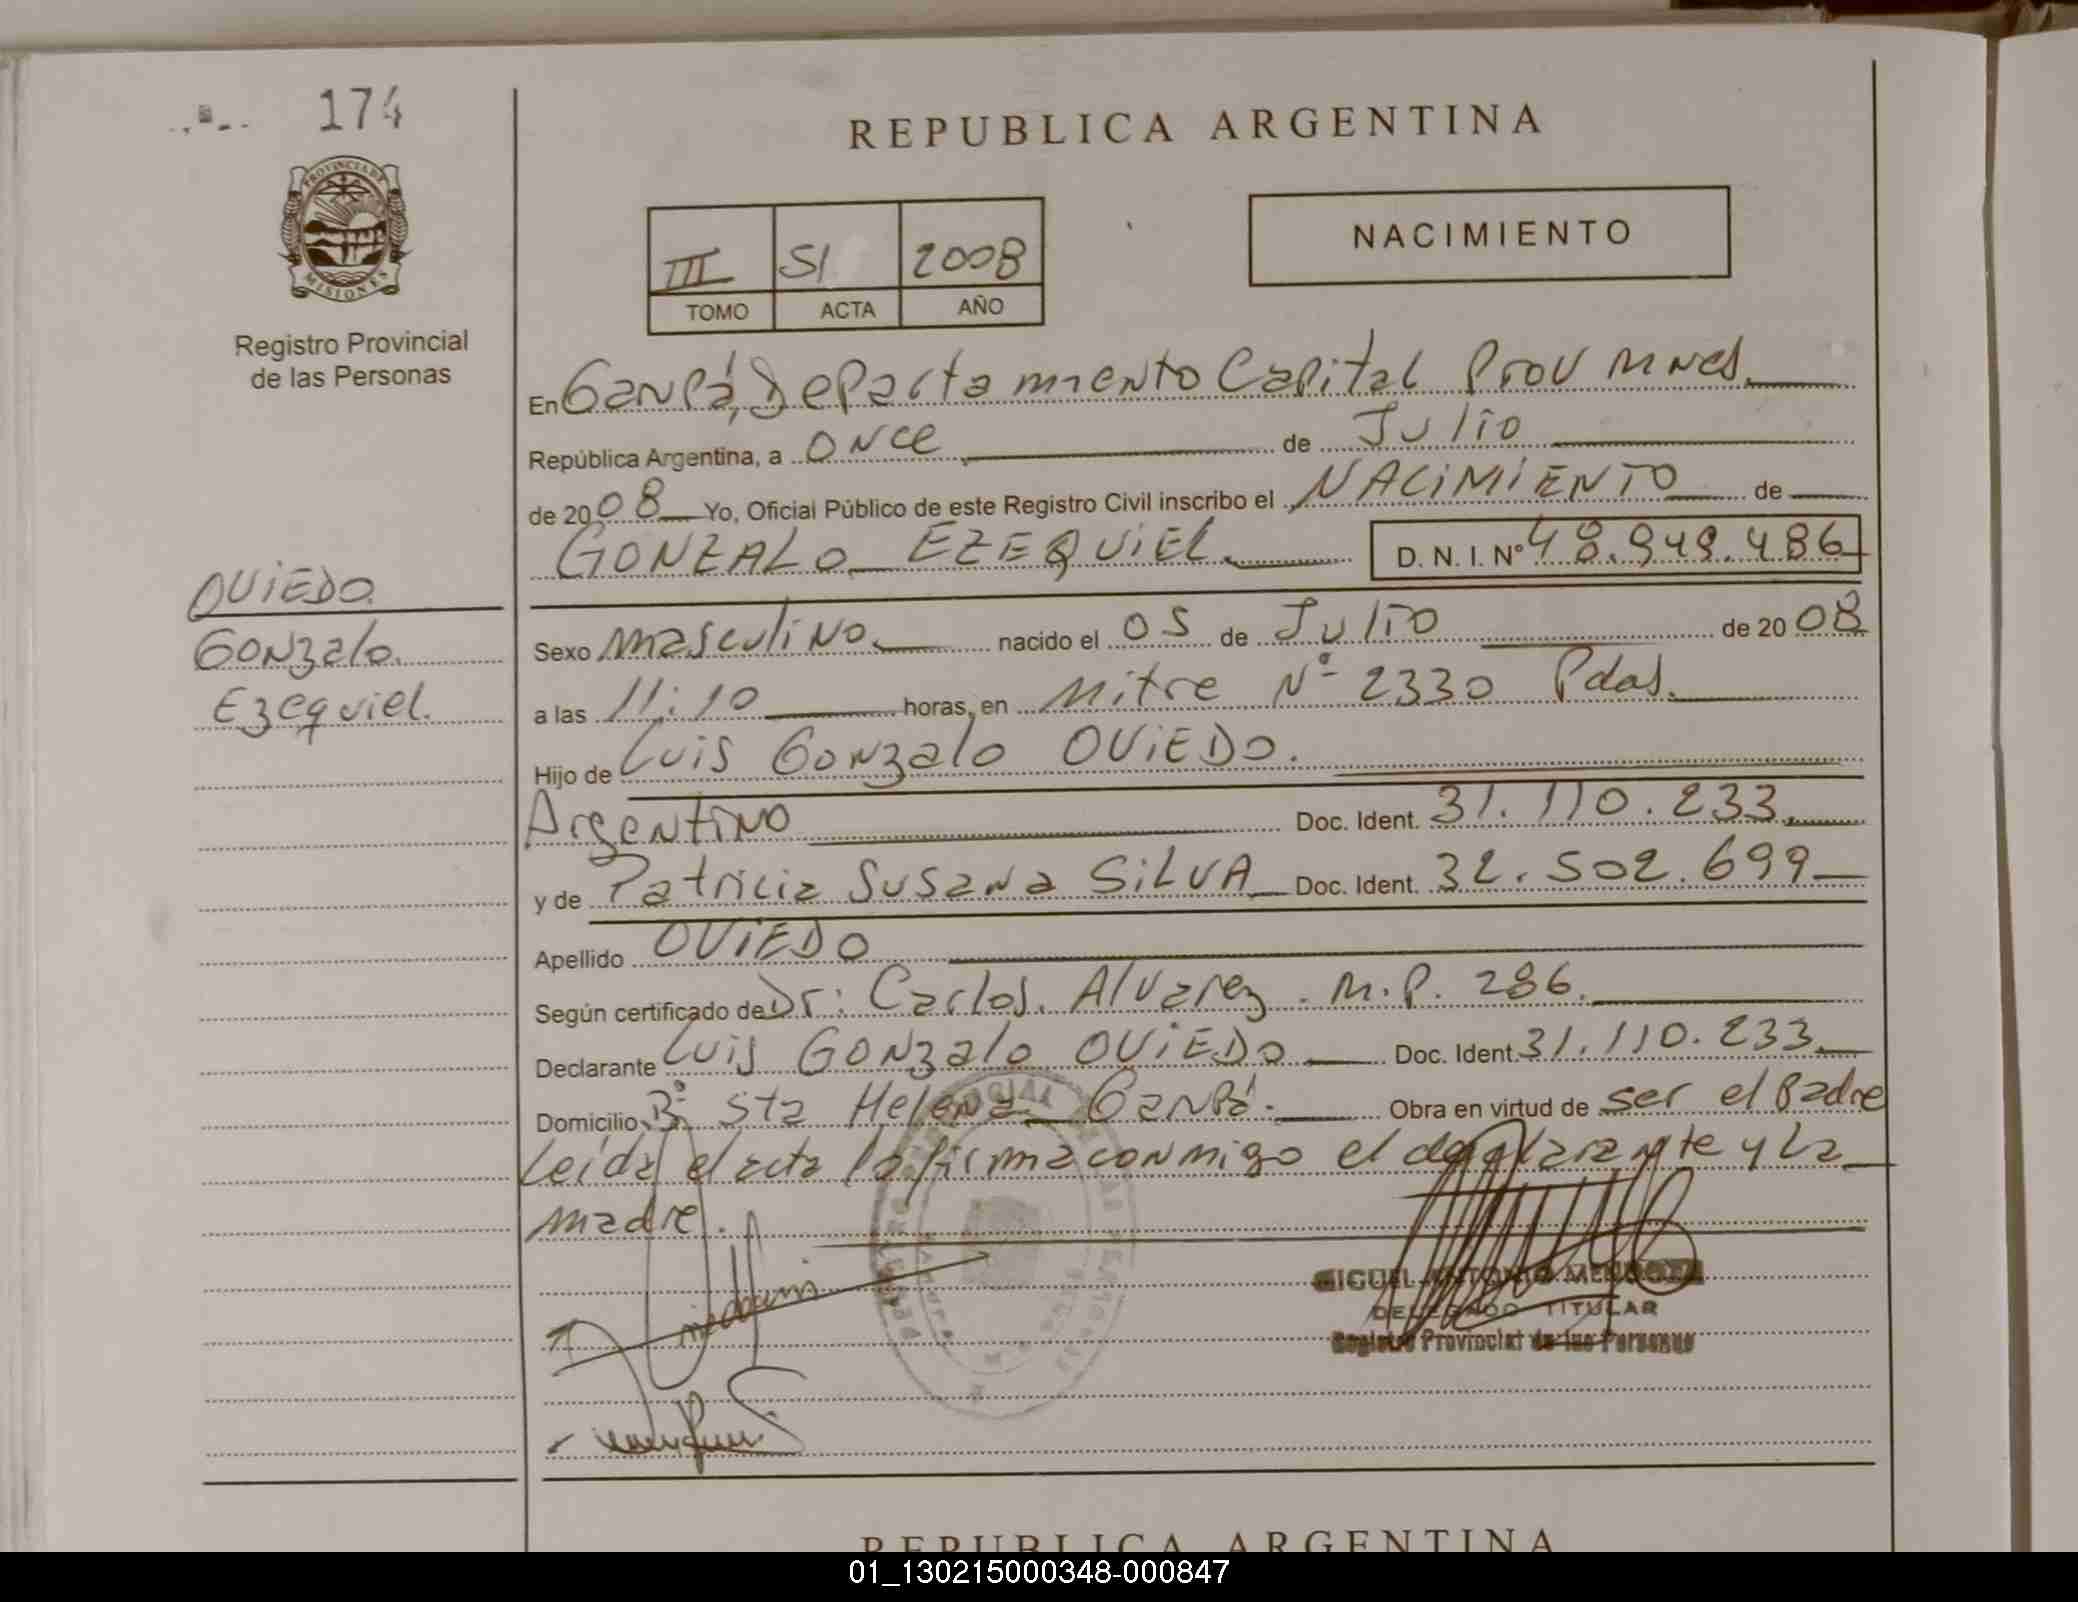 174
PROVINCIA DE
MISIONES
Registro Provincial
de las Personas
REPUBLICA ARGENTINA
III 51 2008
TOMO ACTA AÑO
NACIMIENTO
En Garupá, Departamento Capital Prov Mnes.
República Argentina, a Once de Julio
de 2008 Yo, Oficial Público de este Registro Civil inscribo el NACIMIENTO de
GONZALO EZEQUIEL. D. N. I. Nº 48.949.486
OVIEDO
Gonzalo
Ezequiel.
Sexo masculino nacido el 05 de Julio de 2008
a las 11:10 horas, en Mitre Nº 2330 Pdas.
Hijo de Luis Gonzalo OVIEDO.
Argentino Doc. Ident. 31.110.233
y de Patricia Susana SILVA Doc. Ident. 32.502.699
Apellido OVIEDO
Según certificado de Dr: Carlos Alvarez. M.P. 286.
Declarante Luis Gonzalo OVIEDO Doc. Ident. 31.110.233
Domicilio Bº Sta Helena Garupá. Obra en virtud de ser el Padre
Leída el acta la firma conmigo el declarante y La
madre.
MIGUEL ANTONIO MENDOZA
DELEGADO TITULAR
Registro Provincial de las Personas
REPUBLICA ARGENTINA
01_130215000348-000847